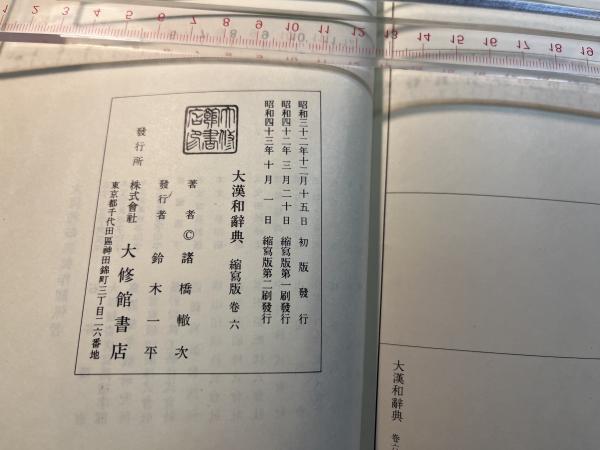 昭和三十二年十二月十五日 初版發行
昭和四十二年三月二十日 縮寫版第一刷發行
昭和四十三年十月一日 縮寫版第二刷發行
大漢和辭典 縮寫版 卷六
著者 © 諸橋轍次
發行者 鈴木一平
發行所 株式會社 大修館書店
東京都千代田區神田錦町三丁目二六番地
大修館書店印
大漢和辭典 卷六
1 2 3 4 5 6 7 8 9 10 11 12 13 14 15 16 17 18 19